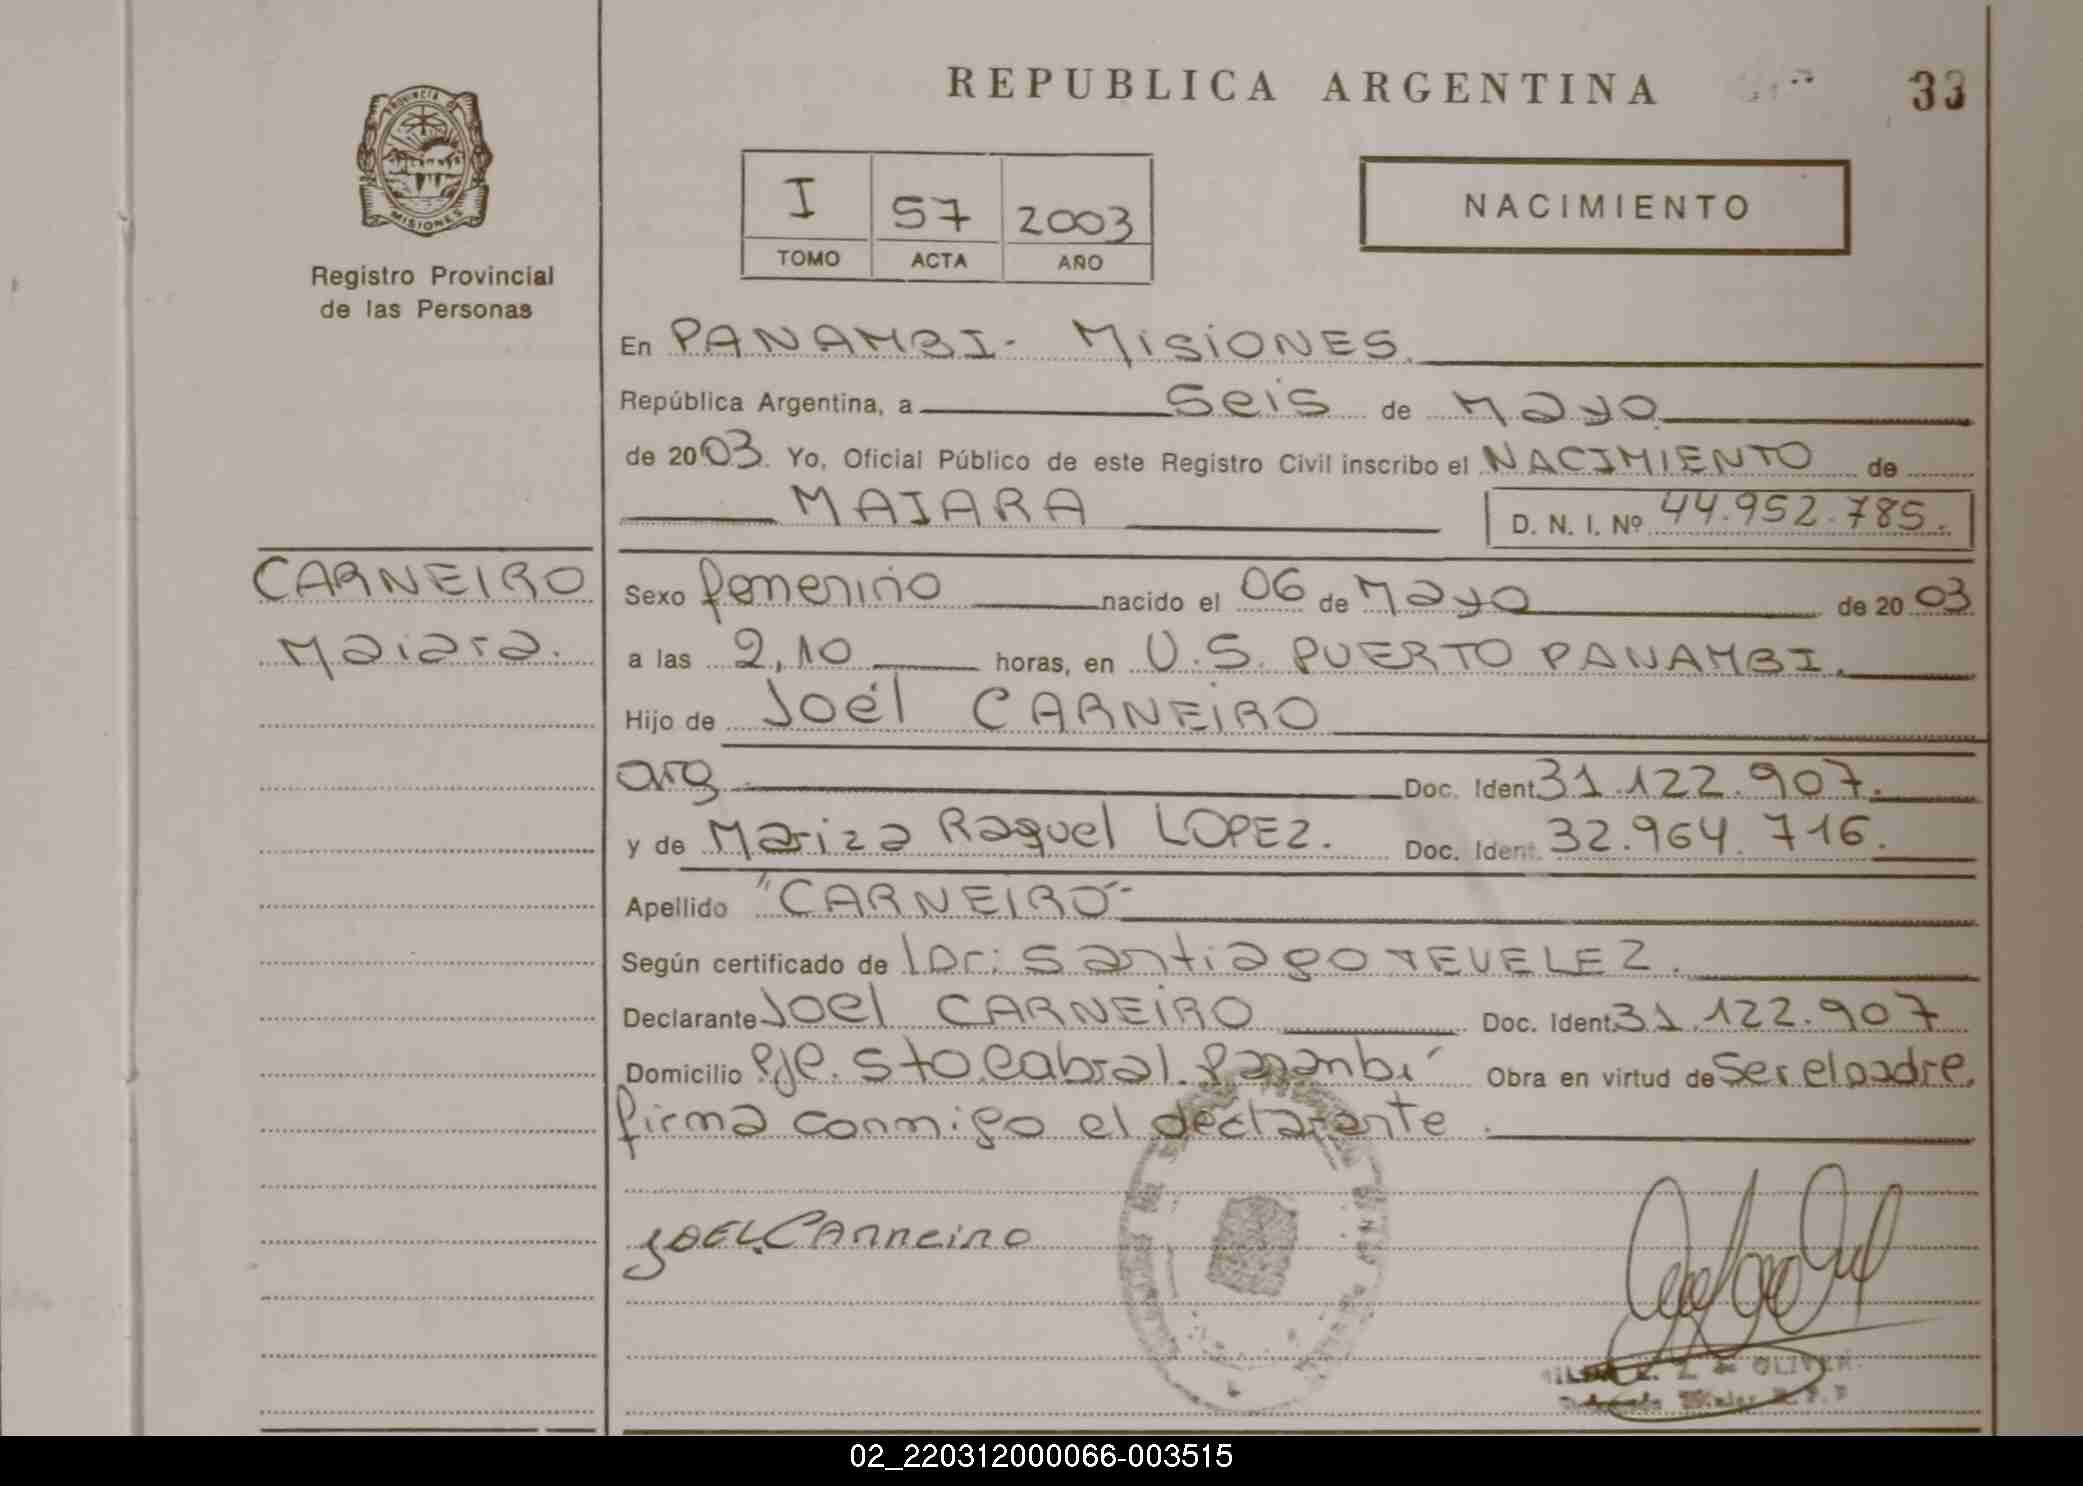 REPUBLICA ARGENTINA
33
PROVINCIA DE
MISIONES
Registro Provincial
de las Personas
I 57 2003
TOMO ACTA AÑO
NACIMIENTO
En PANAMBI - MISIONES.
República Argentina, a Seis de Mayo
de 2003. Yo, Oficial Público de este Registro Civil inscribo el NACIMIENTO de
MAIARA
D. N. I. Nº 44.952.785.
CARNEIRO
Maiara.
Sexo femenino nacido el 06 de Mayo de 2003
a las 2,10 horas, en U.S. PUERTO PANAMBI.
Hijo de Joél CARNEIRO
arg Doc. Ident. 31.122.907.
y de Mariza Raquel LOPEZ. Doc. Ident. 32.964.716.
Apellido "CARNEIRO"
Según certificado de Dr: Santiago TEVELEZ.
Declarante Joel CARNEIRO Doc. Ident. 31.122.907
Domicilio Pje. Sto. Cabral. Panambí Obra en virtud de Ser el padre.
firma conmigo el declarante.
JOEL CARNEIRO
OLIVER
02_220312000066-003515